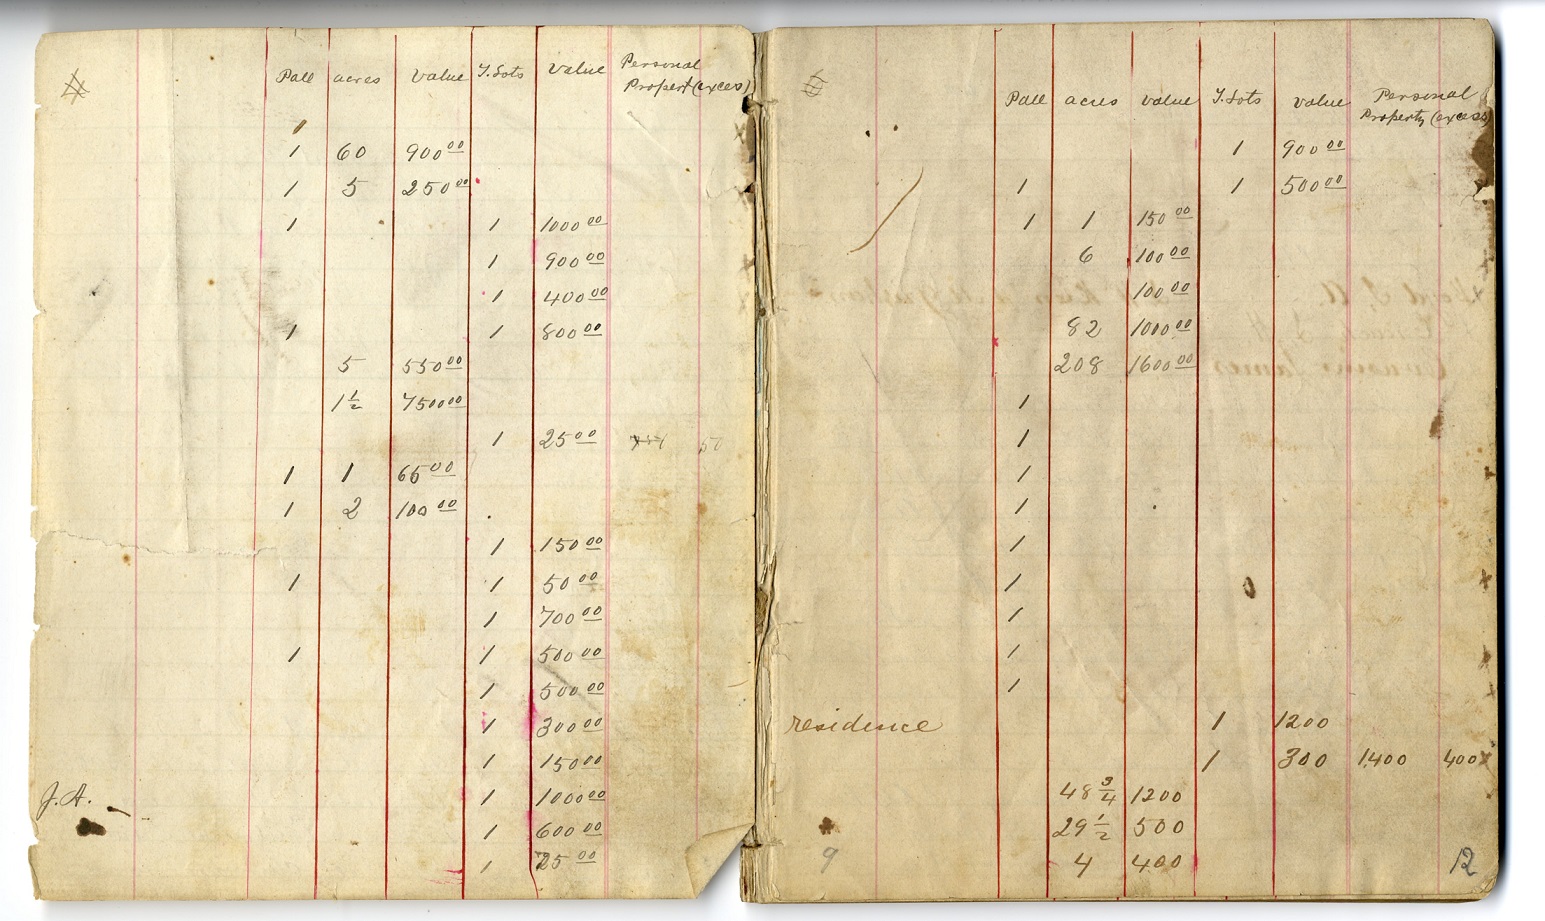 Poll acres value T. Lots value Personal
Property (excess)
1
1 60 900 00
1 5 250 00
1 1 1000 00
1 900 00
1 400 00
1 1 800 00
5 550 00
1 1/2 7500 00
1 25 00 50
1 1 65 00
1 2 100 00
1 150 00
1 1 50 00
1 700 00
1 1 500 00
1 500 00
1 300 00
1 150 00
J. A. 1 1000 00
1 600 00
1 25 00
Poll acres value T. Lots value Personal
Property (excess)
1 900 00
1 1 500 00
1 1 150 00
6 100 00
100 00
82 1000 00
208 1600 00
1
1
1
1
1
1
1
1
1
residence 1 1200
1 300 1400 400
48 3/4 1200
29 1/2 500
4 400
9 12